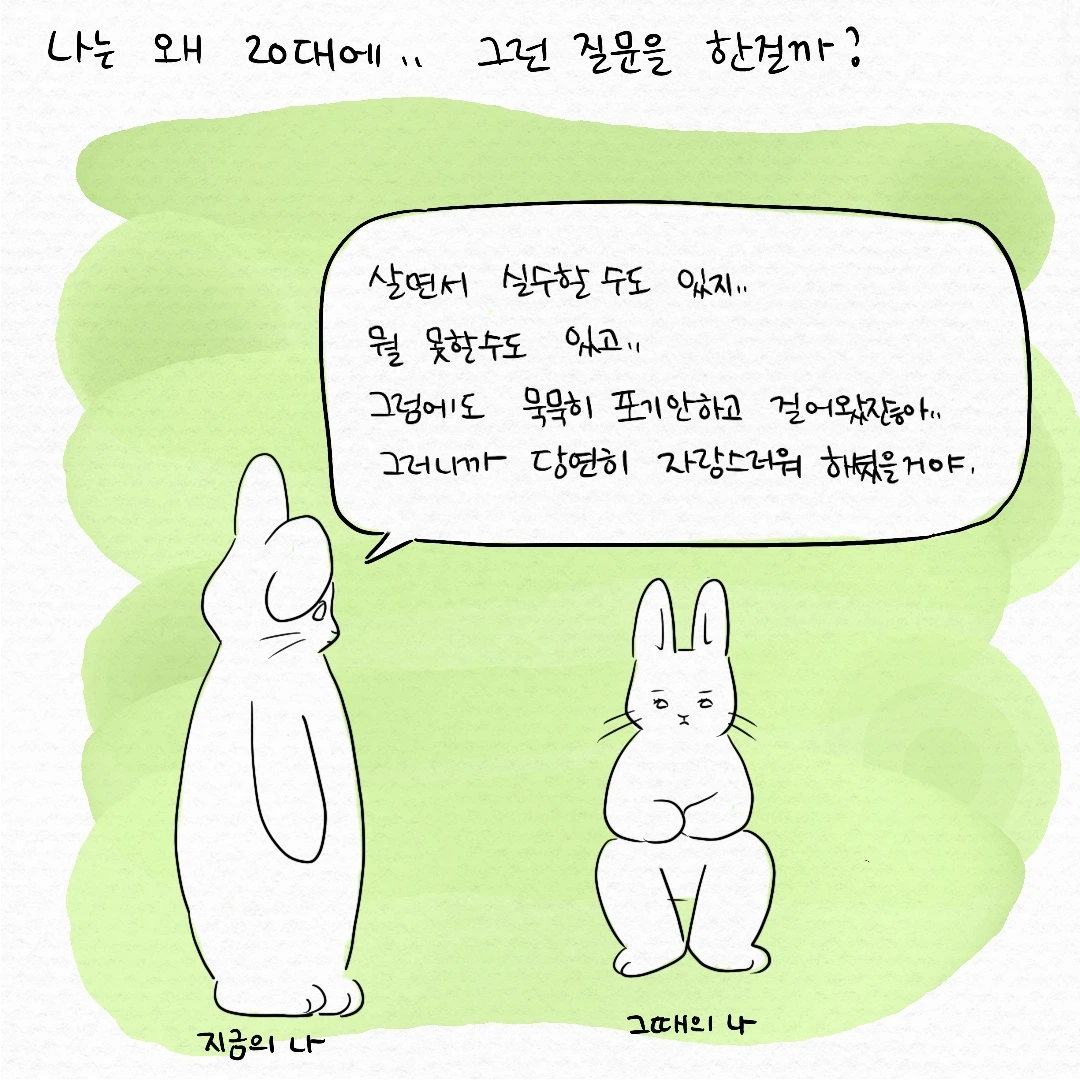 나는 왜 20대에.. 그런 질문을 한걸까?
살면서 실수할 수도 있지..
뭘 못할수도 있고..
그럼에도 묵묵히 포기안하고 걸어왔잖아..
그러니까 당연히 자랑스러워 해줬을거야.
지금의 나
그때의 나